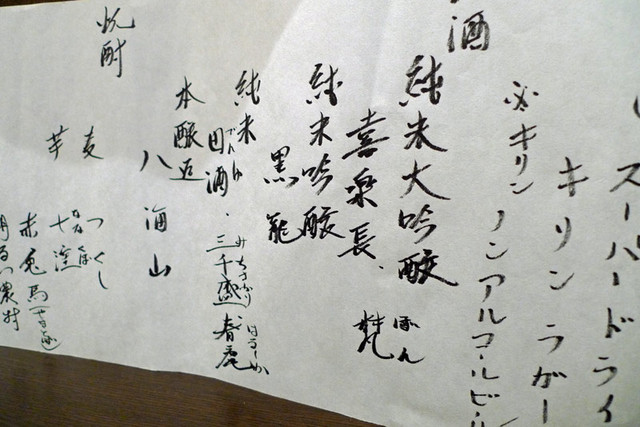 スーパードライ
キリンラガー
キリン
ノンアルコールビール
酒
純米大吟醸
喜楽長、梵
ぼん
純米吟醸
黒龍
純米
田酒・三千盛 春鹿
でんしゅ みちさかり はるしか
本醸造
八海山
焼酎
麦
つくし
芋
七窪
ななくぼ
赤兎馬
農村